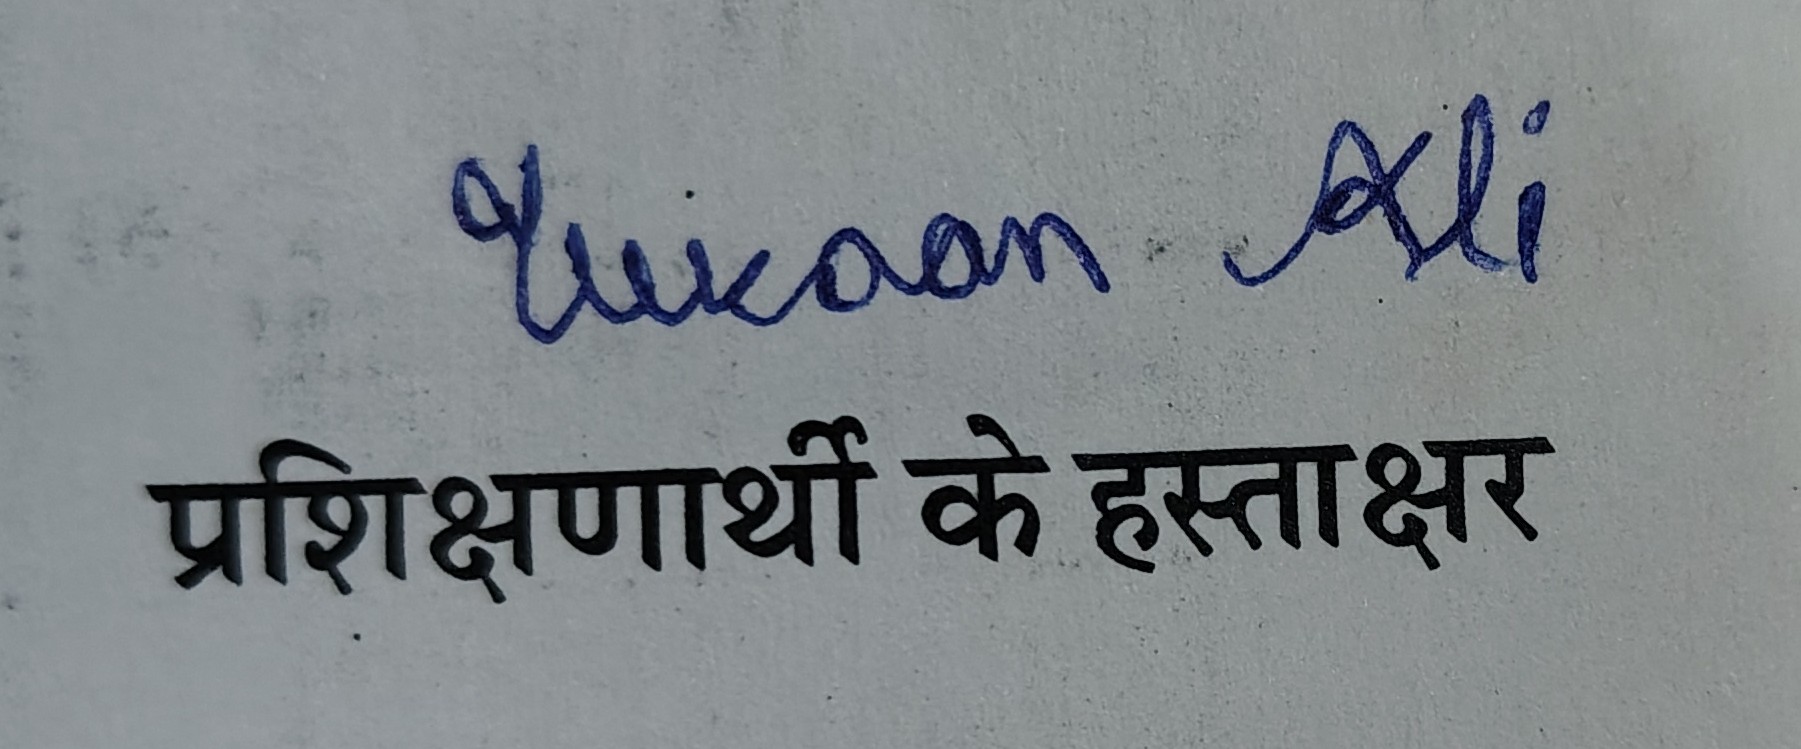 Ali
प्रशिक्षणार्थी के हस्ताक्षर